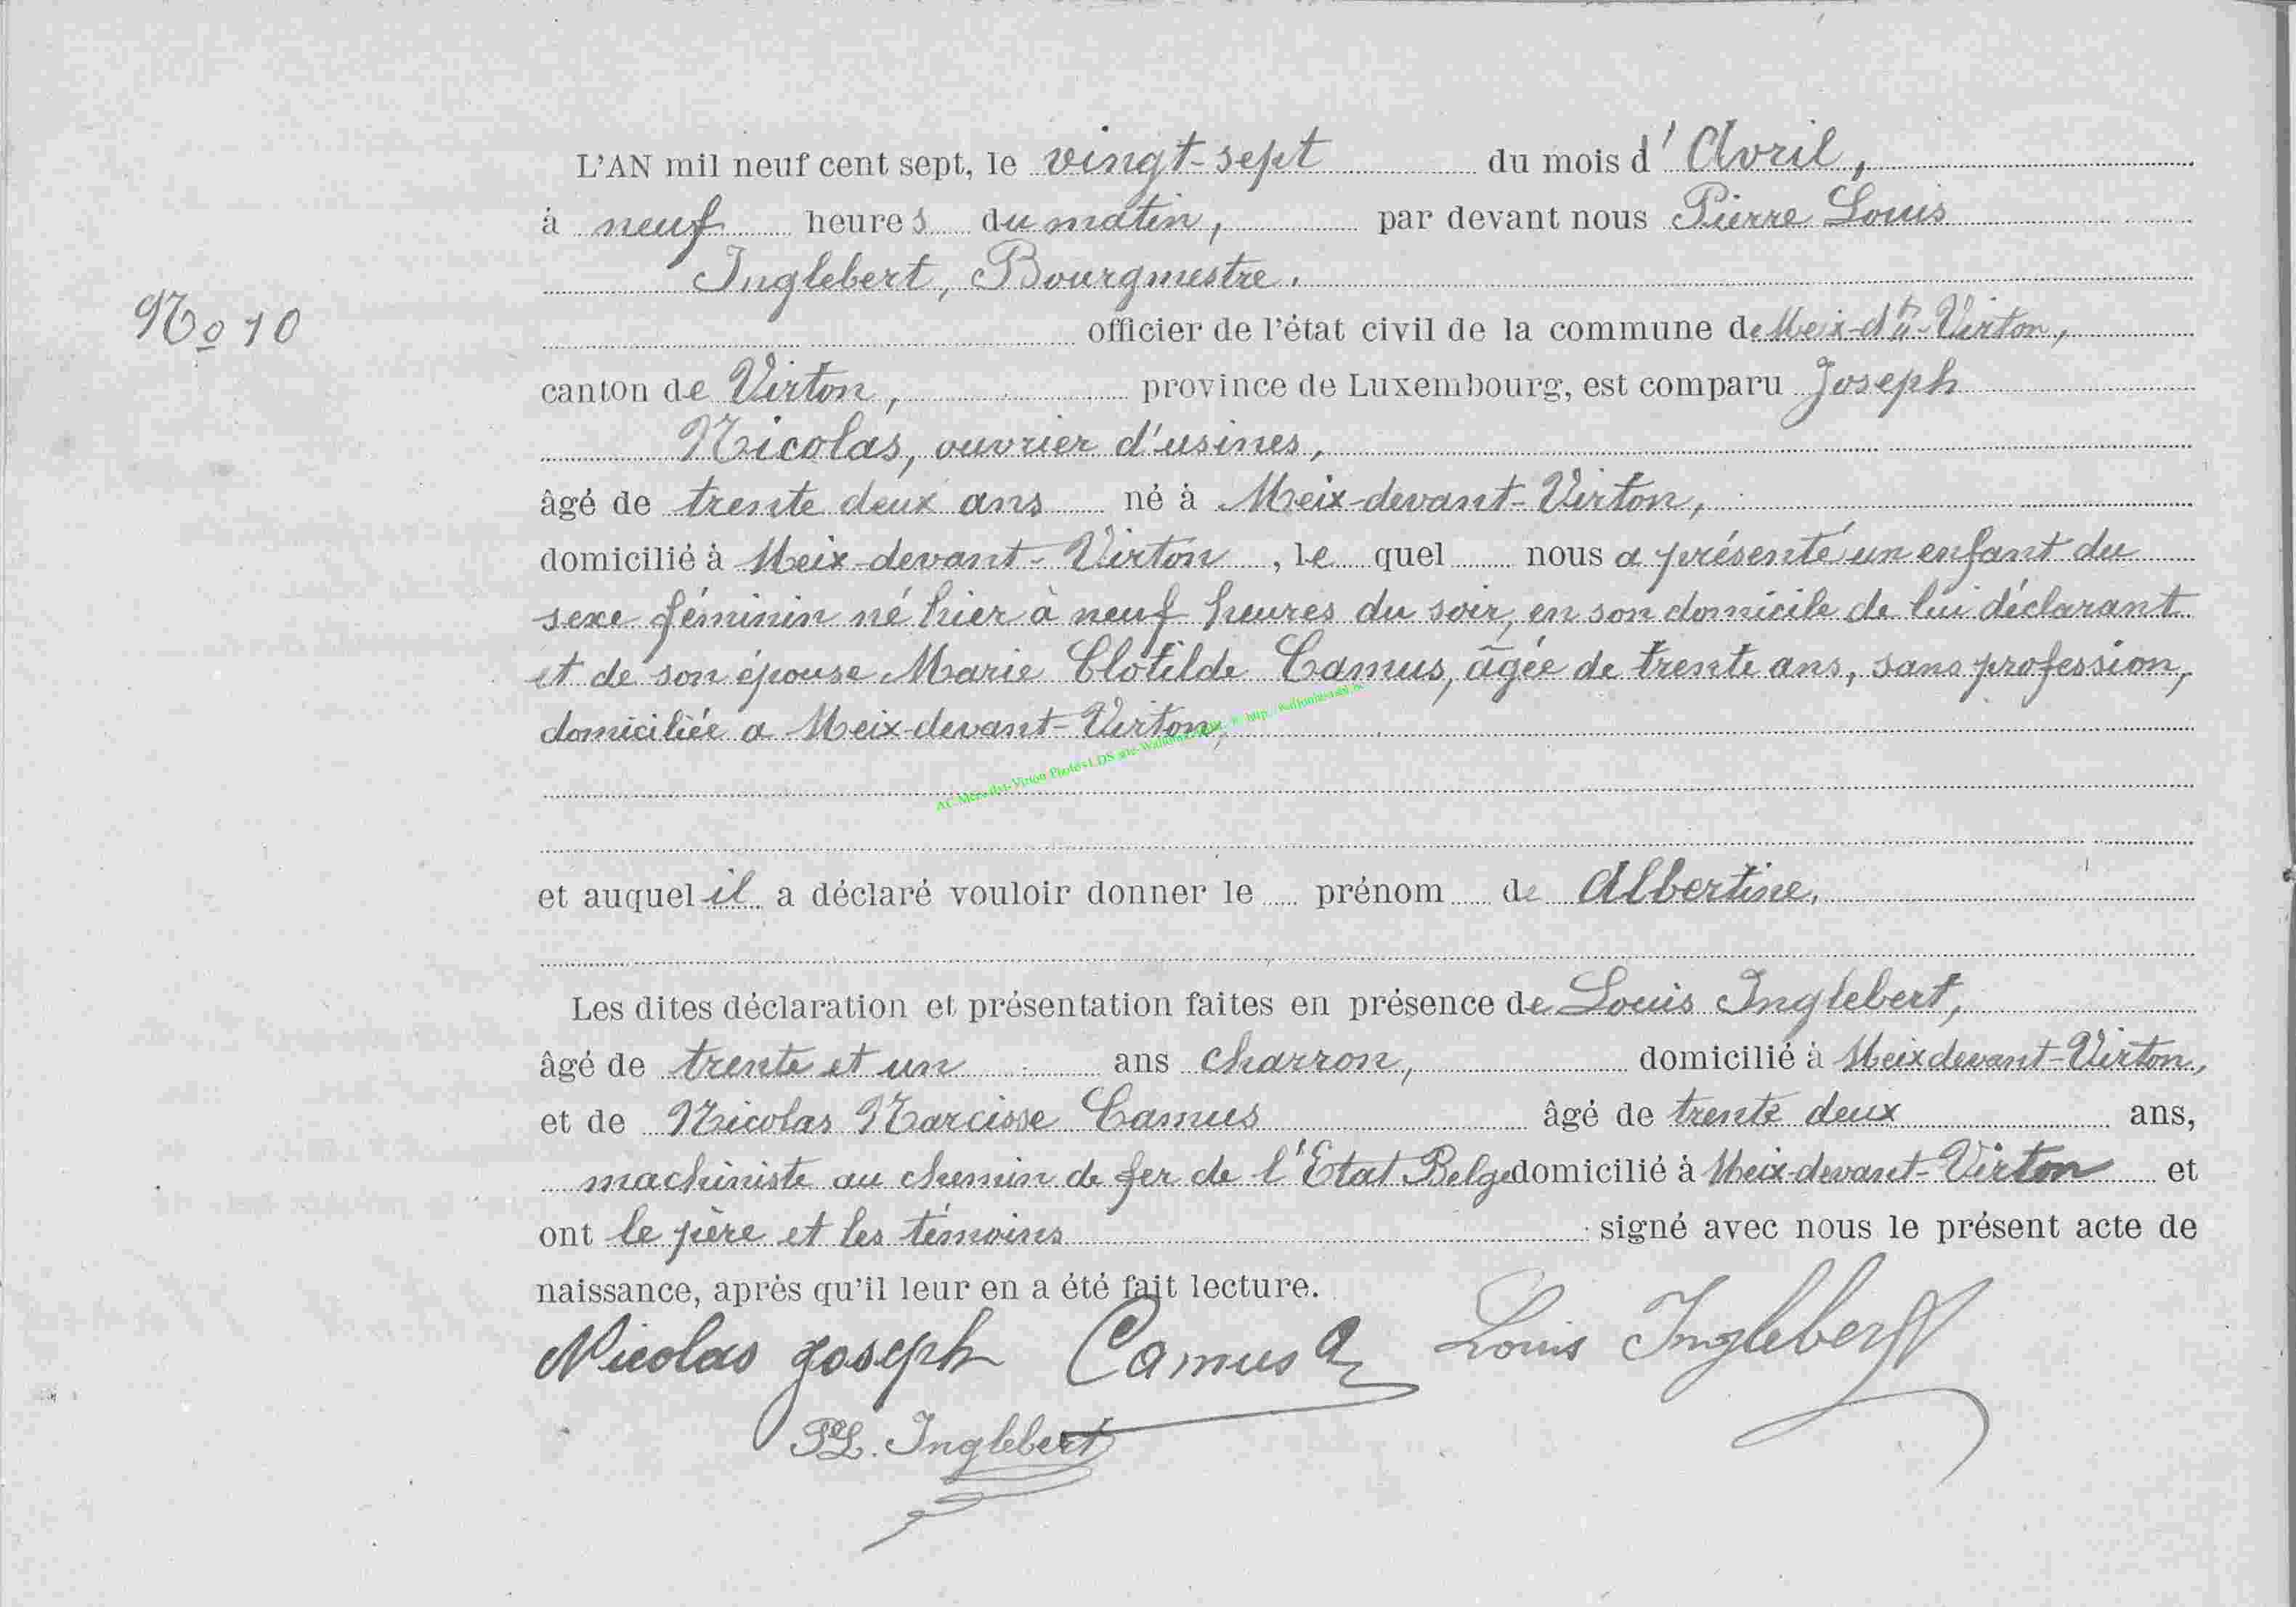 L'AN mil neuf cent sept, le vingt-sept du mois d' Avril,
à neuf heures du matin, par devant nous Pierre Louis
Inglebert, Bourgmestre.
No 10
officier de l'état civil de la commune de Meix-dt-Virton,
canton de Virton, province de Luxembourg, est comparu Joseph
Nicolas, ouvrier d'usines,
âgé de trente deux ans né à Meix-devant-Virton,
domicilié à Meix-devant-Virton, le quel nous a présenté un enfant du
sexe féminin né hier à neuf heures du soir, en son domicile de lui déclarant
et de son épouse Marie Clotilde Camus, âgée de trente ans, sans profession,
domiciliée a Meix-devant-Virton,
et auquel il a déclaré vouloir donner le prénom de Albertine.
Les dites déclaration et présentation faites en présence de Louis Inglebert,
âgé de trente et un ans charron, domicilié à Meix devant-Virton,
et de Nicolas Narcisse Camus âgé de trente deux ans,
machiniste au chemin de fer de l'Etat Belge domicilié à Meix-devant-Virton et
ont le père et les témoins signé avec nous le présent acte de
naissance, après qu'il leur en a été fait lecture.
Nicolas Joseph Camus Louis Inglebert
P.L. Inglebert